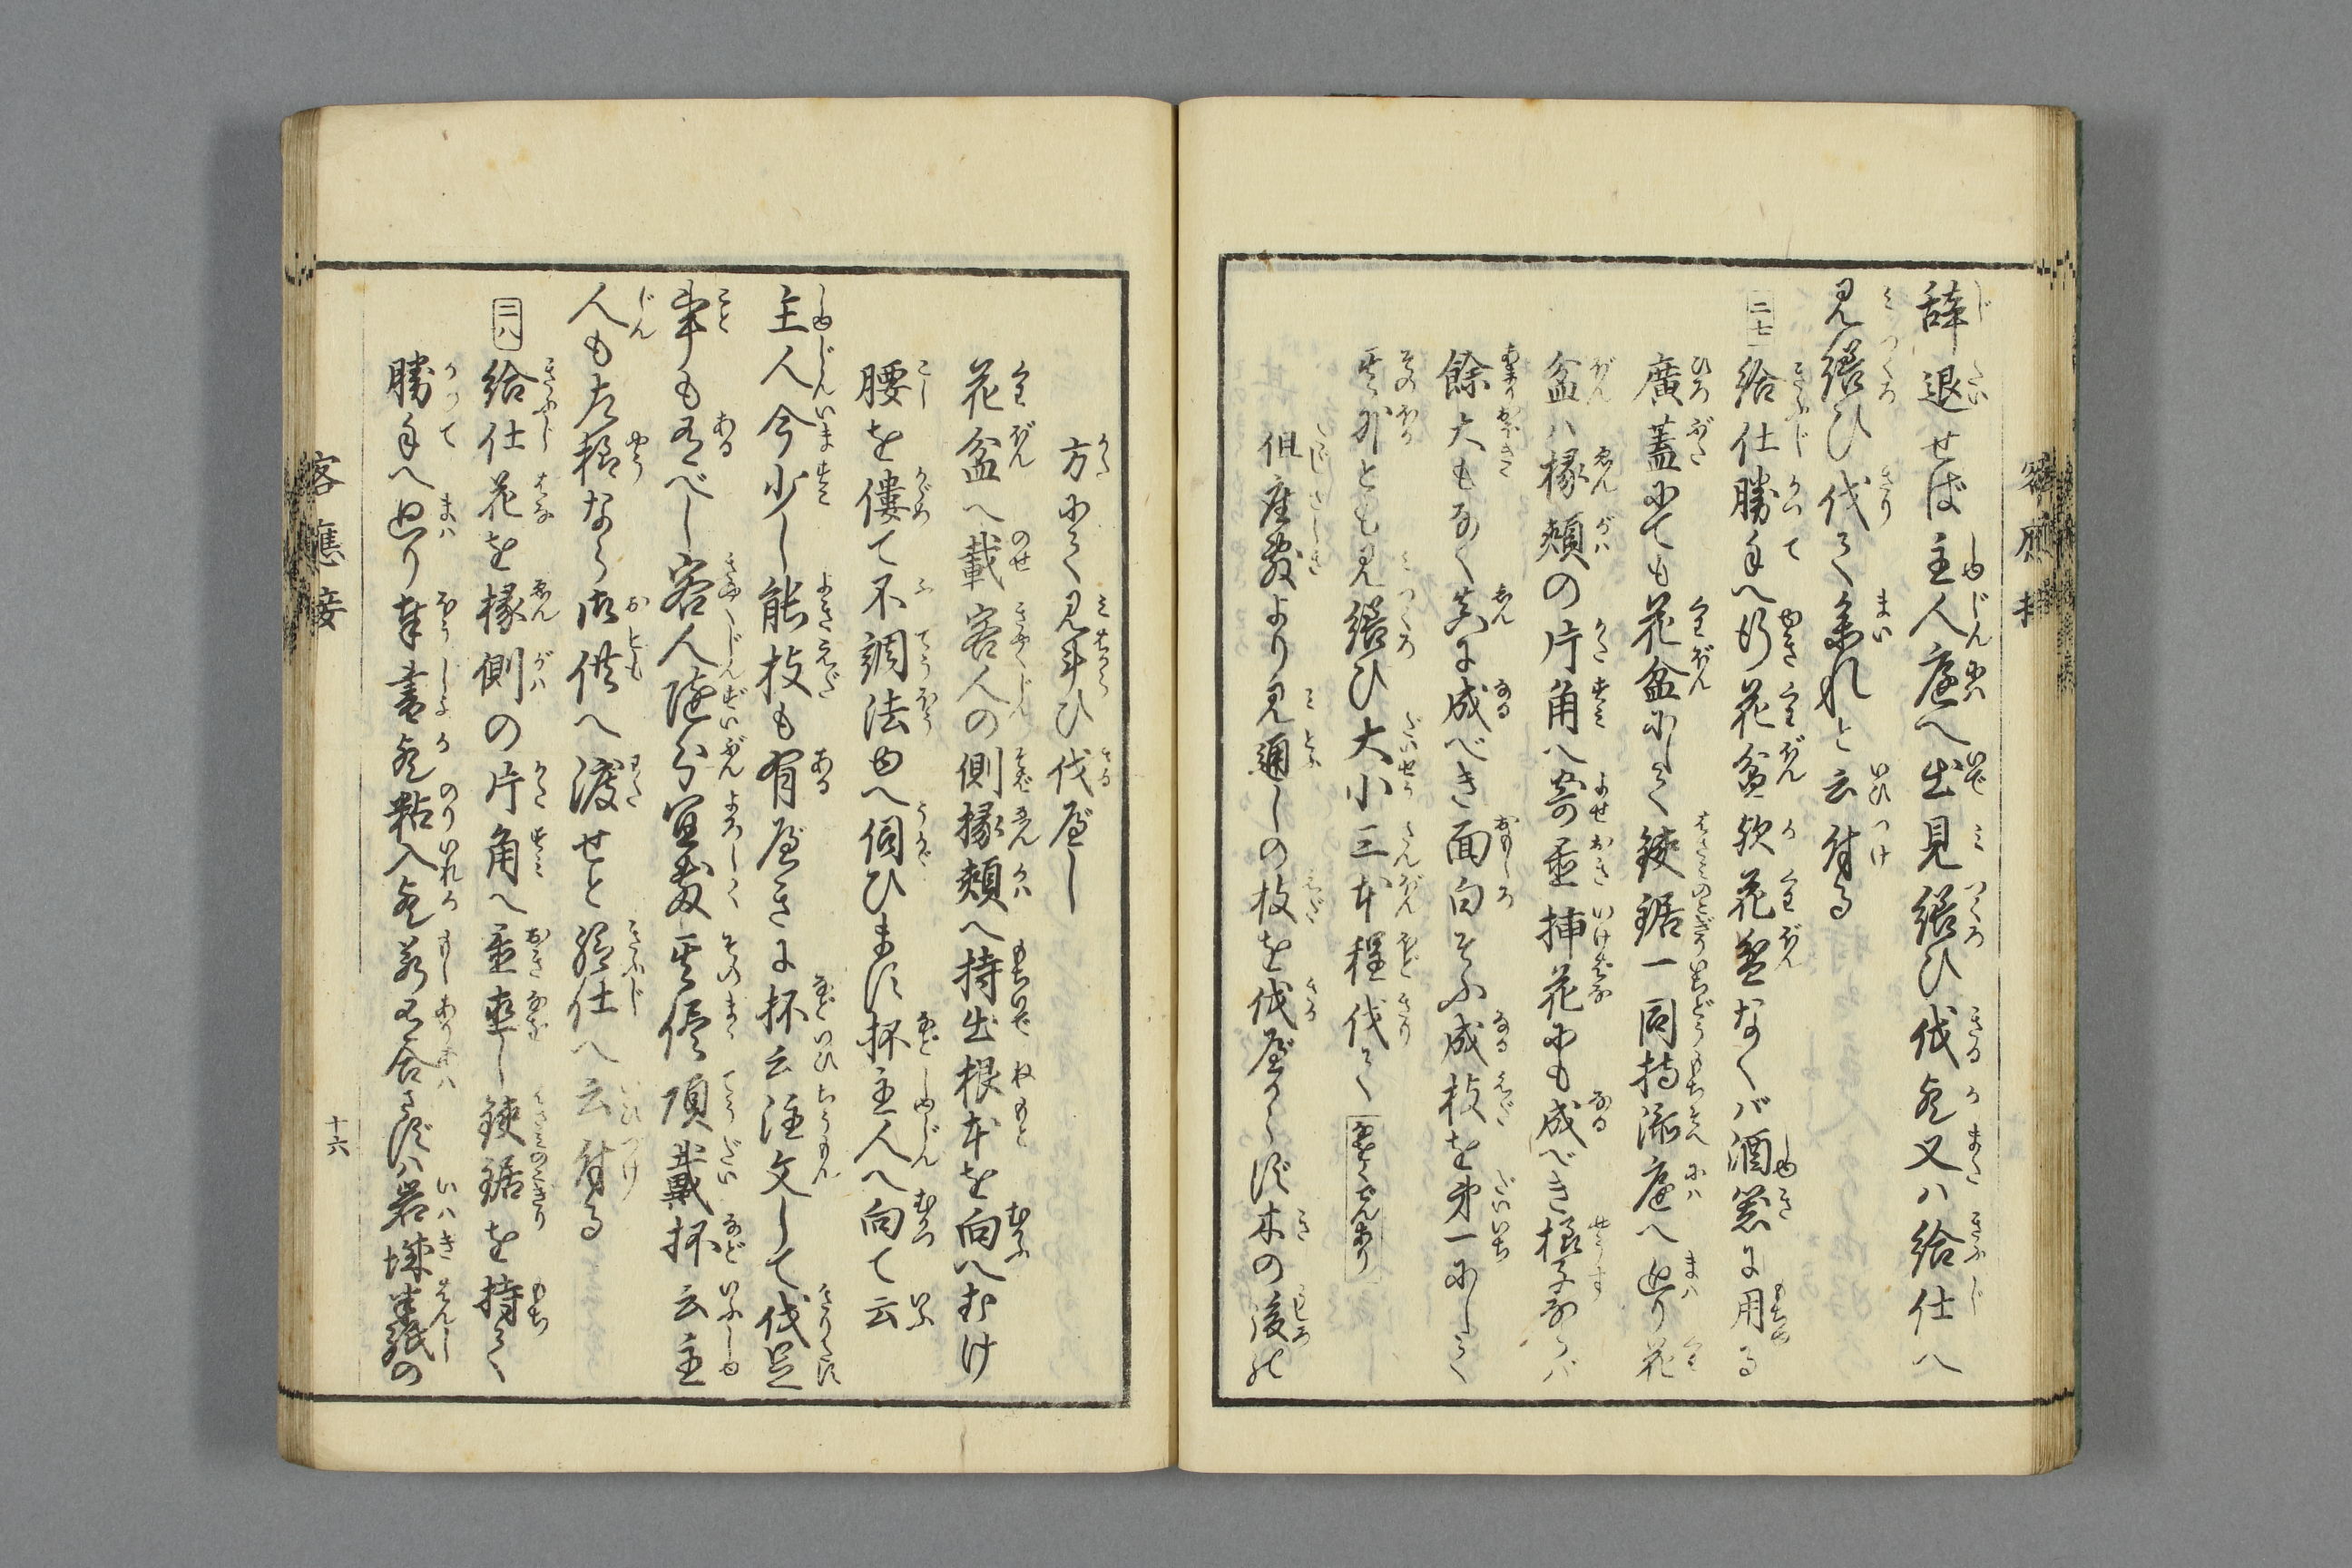 辞退せば主人庭へ出見繕ひ伐る歟又ハ給仕へ
見繕ひ伐て参れと云付る
二七 給仕勝手へ行花盆歟花盆なくバ酒䑓に用る
廣蓋にても花盆にして鋏鋸一同持添庭へ廻り花
盆ハ椽頬の片角へ寄置挿花にも成べき様子ならバ
餘大もなく真に成べき面白そふ成枝を第一にして
其外とも見繕ひ大小三本程伐て
但座敷より見通しの枝を伐べからず木の後の
方にて見斗ひ伐べし
花盆へ載客人の側椽頬へ持出根本を向へむけ
腰を僂て不調法ゆへ伺ひます抔主人へ向て云
主人今少し能枝も有べきに抔云注文して伐足
事も有べし客人随分宜敷其侭頂戴抔云主
人も左様なら御供へ渡せと給仕へ云付る
二八 給仕花を椽側の片角へ置直し鋏鋸を持て
勝手へ廻り奉書歟粘入歟若有合さずハ岩城半紙の
客應接
十六